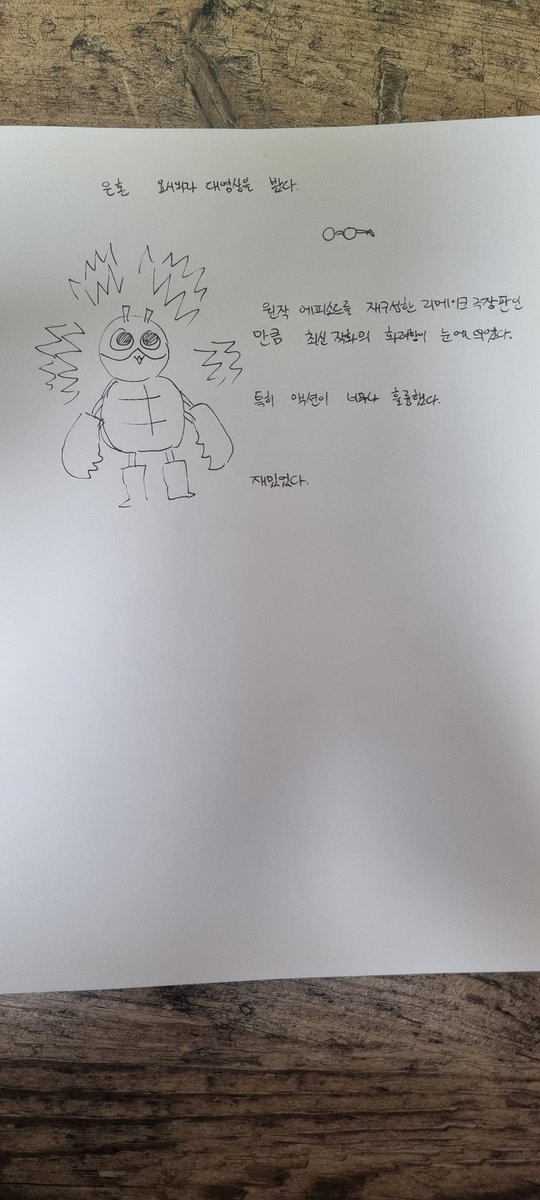 은혼 요시와라 대염상을 봤다.
원작 에피소드를 재구성한 리메이크 극장판인
만큼 최신 작화의 화려함이 눈에 띄었다.
특히 액션이 너무나 훌륭했다.
재밌었다.